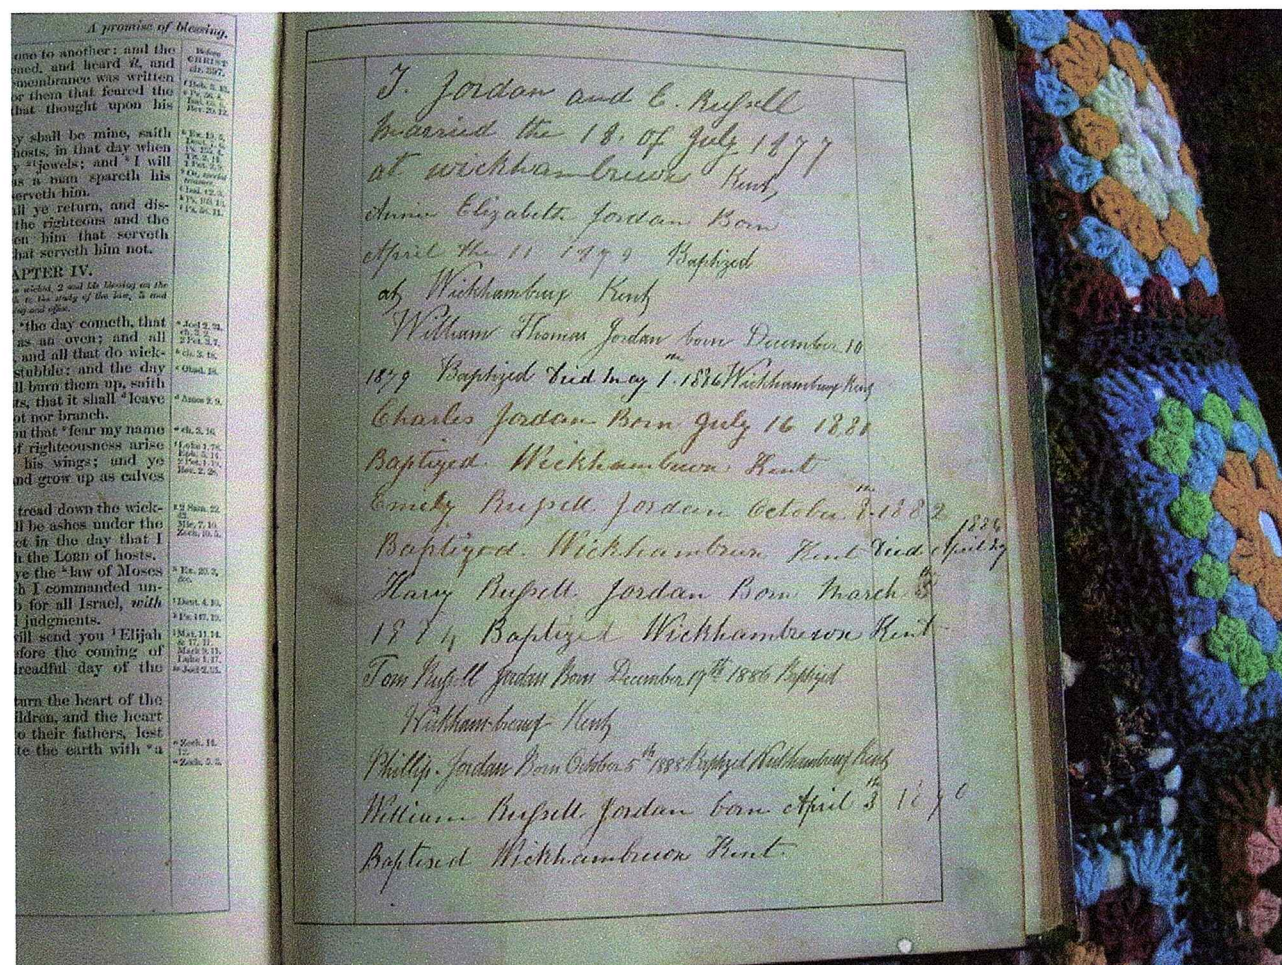 A promise of blessing.
one to another: and the
ned, and heard it, and
emembrance was written
or them that feared the
that thought upon his
y shall be mine, saith
hosts, in that day when
y jewels; and I will
as a man spareth his
serveth him.
ll ye return, and dis-
the righteous and the
en him that serveth
hat serveth him not.
APTER IV.
the day cometh, that
as an oven; and all
and all that do wick-
stubble: and the day
ll burn them up, saith
ts, that it shall leave
ot nor branch.
u that fear my name
f righteousness arise
his wings; and ye
nd grow up as calves
tread down the wick-
ll be ashes under the
et in the day that I
h the LORD of hosts.
ye the law of Moses
h I commanded un-
b for all Israel, with
judgments.
will send you Elijah
efore the coming of
dreadful day of the
turn the heart of the
ildren, and the heart
o their fathers, lest
ite the earth with a
Before
CHRIST
T. Jordan and C. Russell
Married the 18. of July 1877
at Wickhambreux Kent
Annie Elizabeth Jordan Born
April the 11 1879 Baptized
at Wickhambrux Kent
William Thomas Jordan born December 10
1879 Baptized Died May 1. 1886 Wickhambrux Kent
Charles Jordan Born July 16 1881
Baptized Wickhambreux Kent
Emily Russell Jordan October 8th 1882
Baptized. Wickhambrux Kent Died April 27 1884
Harry Russell Jordan Born March 5th
1884 Baptized Wickhambreux Kent
Tom Russell Jordan Born December 19th 1886 Baptized
Wickhambreux Kent
Phillip Jordan Born October 5th 1888 Baptized Wickhambreux Kent
William Russell Jordan born April 3th 1890
Baptised Wickhambreux Kent